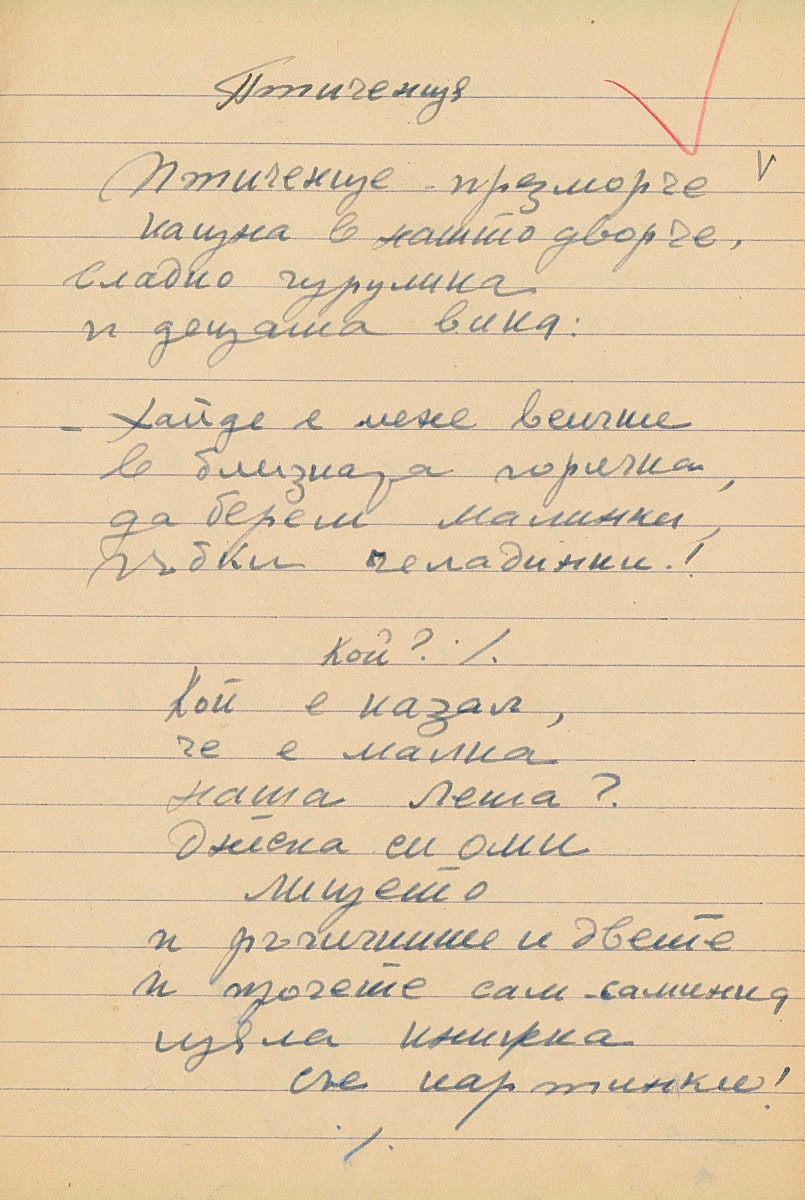 Птиченце
Птиченце - презморче
кацна в нашто дворче,
сладко чурулика
и децата вика:
- Хайде с мене всички
в близката горичка,
да берем малинки,
гъбки челадинки!
Кой? ٪
Кой е казал,
че е малка
наша Леша?
Днеска си оми
лицето
и ръчичките и двете
и прочете сам-саминка
цяла книжка
със картинки!
٪